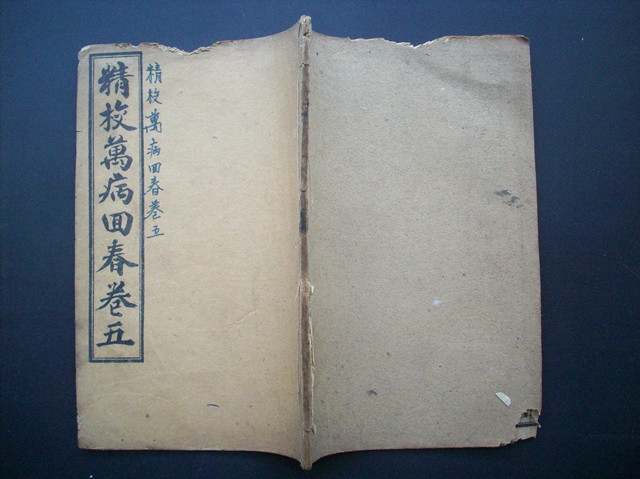 精校萬病回春卷五
精校萬病回春卷五